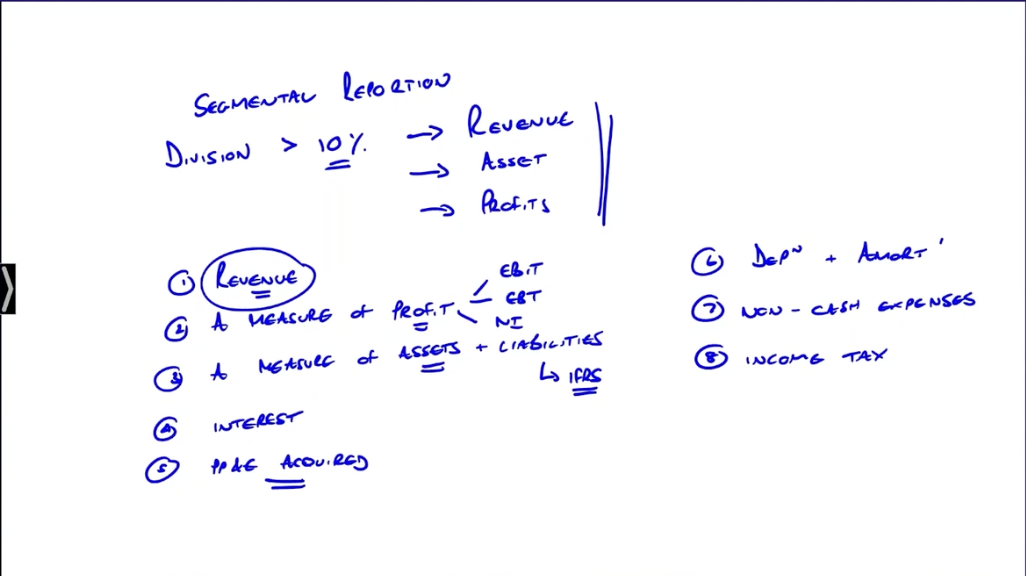 SEGMENTAL REPORTION
DIVISION > 10% → REVENUE
→ ASSET
→ PROFITS
① REVENUE
② A MEASURE OF PROFIT EBIT
EBT
NI
③ A MEASURE OF ASSETS + LIABILITIES
↳ IFRS
④ INTEREST
⑤ PP&E ACQUIRED
⑥ DEPN + AMORT'
⑦ NON-CASH EXPENSES
⑧ INCOME TAX